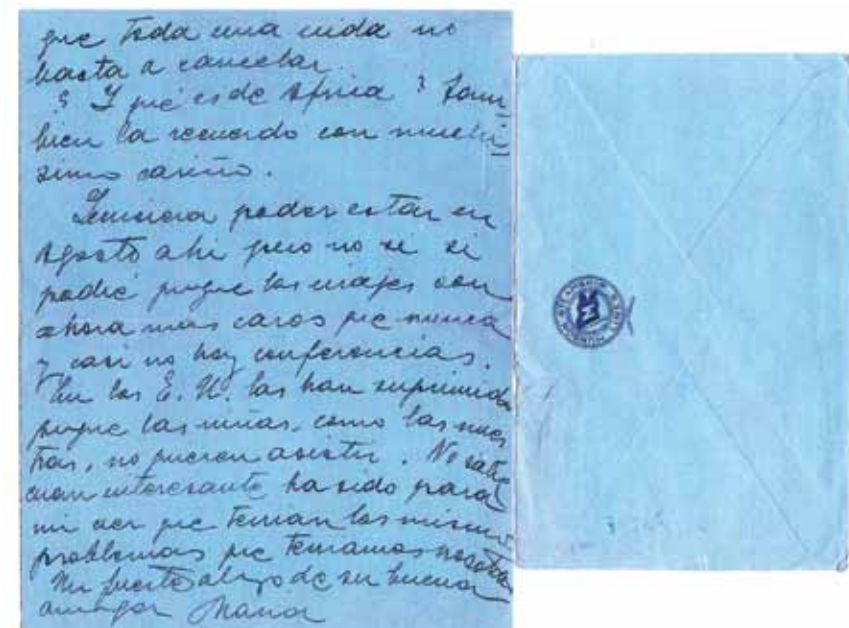 que toda una vida no
basta a cancelar.
¿Y qué es de Africa? Tam-
bien la recuerdo con muchí-
simo cariño.
poder estar en
Agosto ahi pero no se si
podré porque los viajes son
ahora mas caros que nunca
y casi no hay conferencias.
En los E. U. las han suprimido
porque las niñas, como las nues
tras, no quieren asistir. No sabe
cuan interesante ha sido para
mi ver que tenian los mismos
problemas que teniamos nosotras
Un fuerte abrazo de su buena
amiga Maria